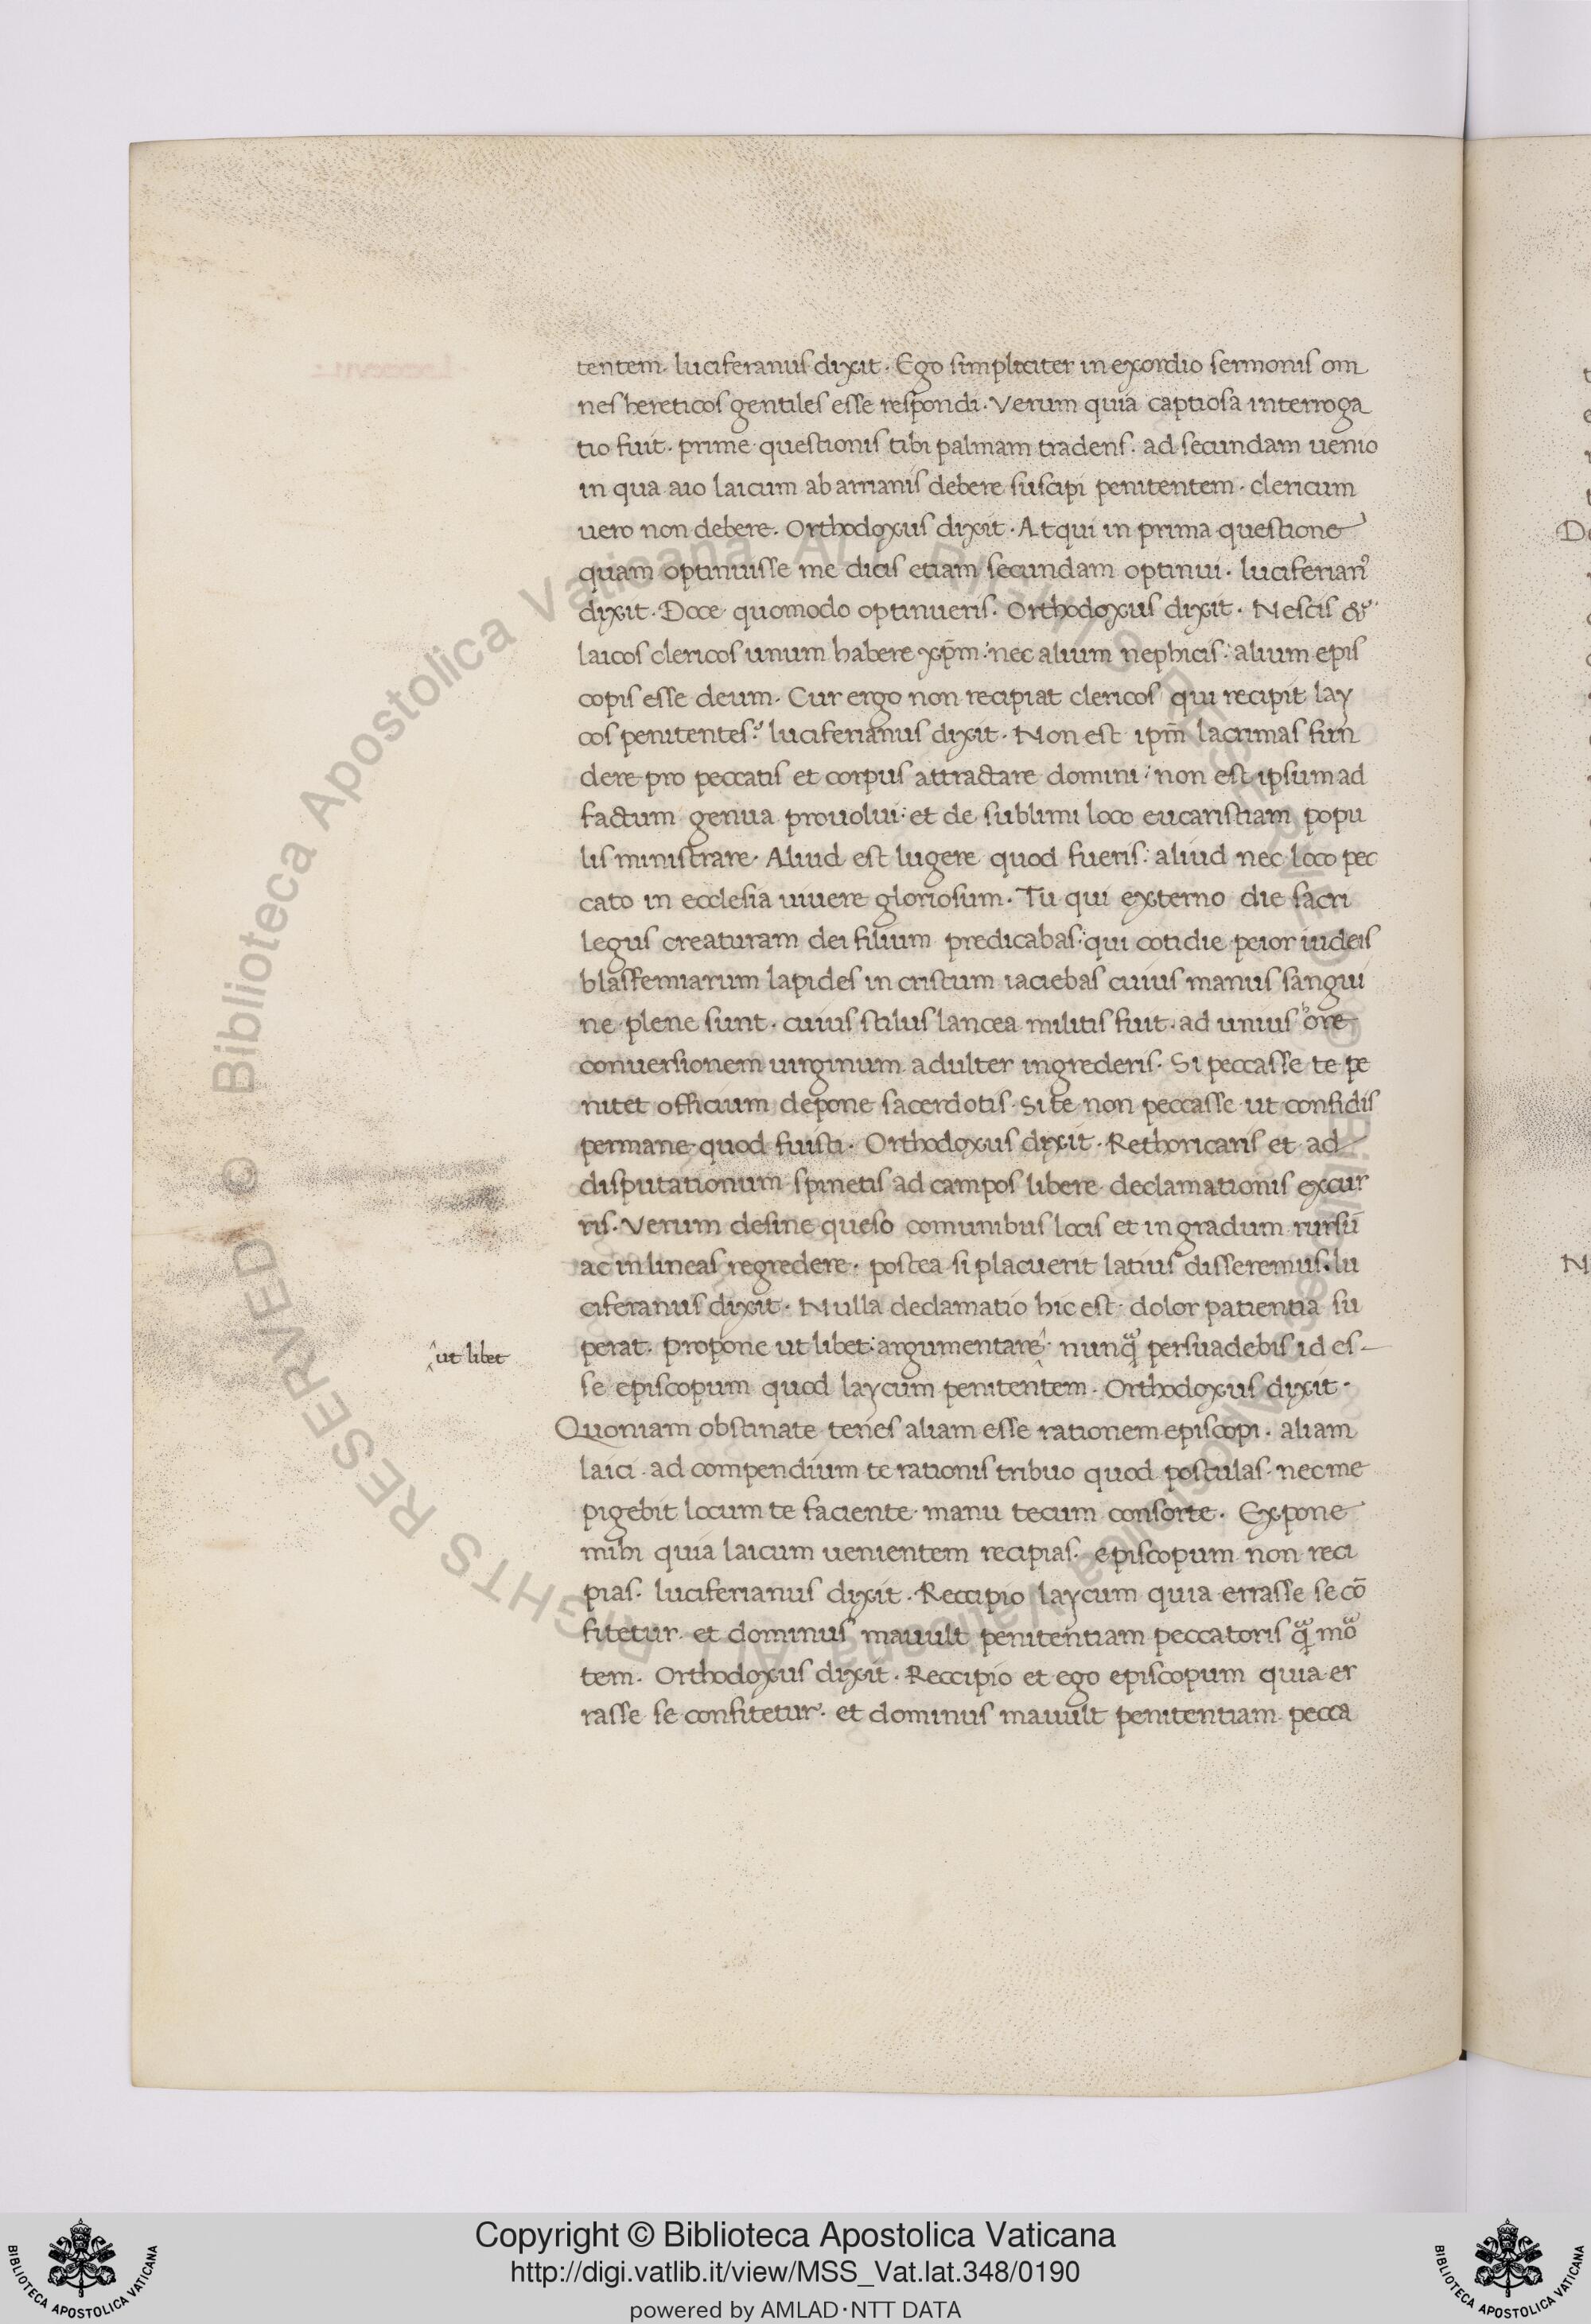 tentem. luciferanus dixit. Ego simpliciter in exordio sermonis om
nes hereticos gentiles esse respondi. Verum quia captiosa interroga
tio fuit. prime questionis tibi palmam tradens. ad secundam uenio
in qua aio laicum ab arrianis debere suscipi penitentem. clericum
uero non debere. Orthodoxus dixit. Atqui in prima questione
quam optinuisse me dicis etiam secundam optinui. luciferianꝰ
dixit. Doce quomodo optinueris. Orthodoxus dixit. Nescis &
laicos clericos unum habere xp̄m: nec alium nephicis: alium epis
copis esse deum. Cur ergo non recipiat clericos qui recipit lay
cos penitentes? luciferianus dixit. Non est ip̄m lacrimas fun
dere pro peccatis et corpus attractare domini: non est ipsum ad
factum genua prouolui: et de sublimi loco eucaristiam popu
lis ministrare. Aliud est lugere quod fueris: aliud nec loco pec
cato in ecclesia uiuere gloriosum. Tu qui externo die sacri
legus creaturam dei filium predicabas: qui cotidie peior iudeis
blasfemiarum lapides in cristum iaciebas cuius manus sangui
ne plene sunt. cuius stilus lancea militis fuit. ad unius hore
conuersionem uirginum adulter ingrederis. Si peccasse te pe
nitet officium depone sacerdotis. Si te non peccasse ut confidis
permane quod fuisti. Orthodoxus dixit. Rethoricaris et ad
disputationum spinetis ad campos libere declamationis excur
ris. Verum desine queso comunibus locis et in gradum rursū
ac in lineas regredere. postea si placuerit latius disseremus. lu
ciferanus dixit. Nulla declamatio hic est. dolor patientia su
perat. propone ut libet: argumentare. nunqͣ persuadebis id es-
ut libet
se episcopum quod laycum penitentem. Orthodoxus dixit.
Quoniam obstinate tenes aliam esse rationem episcopi. aliam
laici. ad compendium te rationis tribuo quod postulas. nec me
pigebit locum te faciente manu tecum consorte. Expone
mihi quia laicum uenientem recipias. episcopum non reci
pias. luciferianus dixit. Reccipio laycum quia errasse se cō
fitetur. et dominus mauult penitentiam peccatoris qͣ mo
tem. Orthodoxus dixit. Reccipio et ego episcopum quia er
rasse se confitetur. et dominus mauult penitentiam pecca
© Biblioteca Apostolica Vaticana ALL RIGHTS RESERVED © Biblioteca Apostolica Vaticana ALL RIGHTS RESERVED
Copyright © Biblioteca Apostolica Vaticana
http://digi.vatlib.it/view/MSS_Vat.lat.348/0190
powered by AMLAD·NTT DATA
BIBLIOTECA APOSTOLICA VATICANA
BIBLIOTECA APOSTOLICA VATICANA